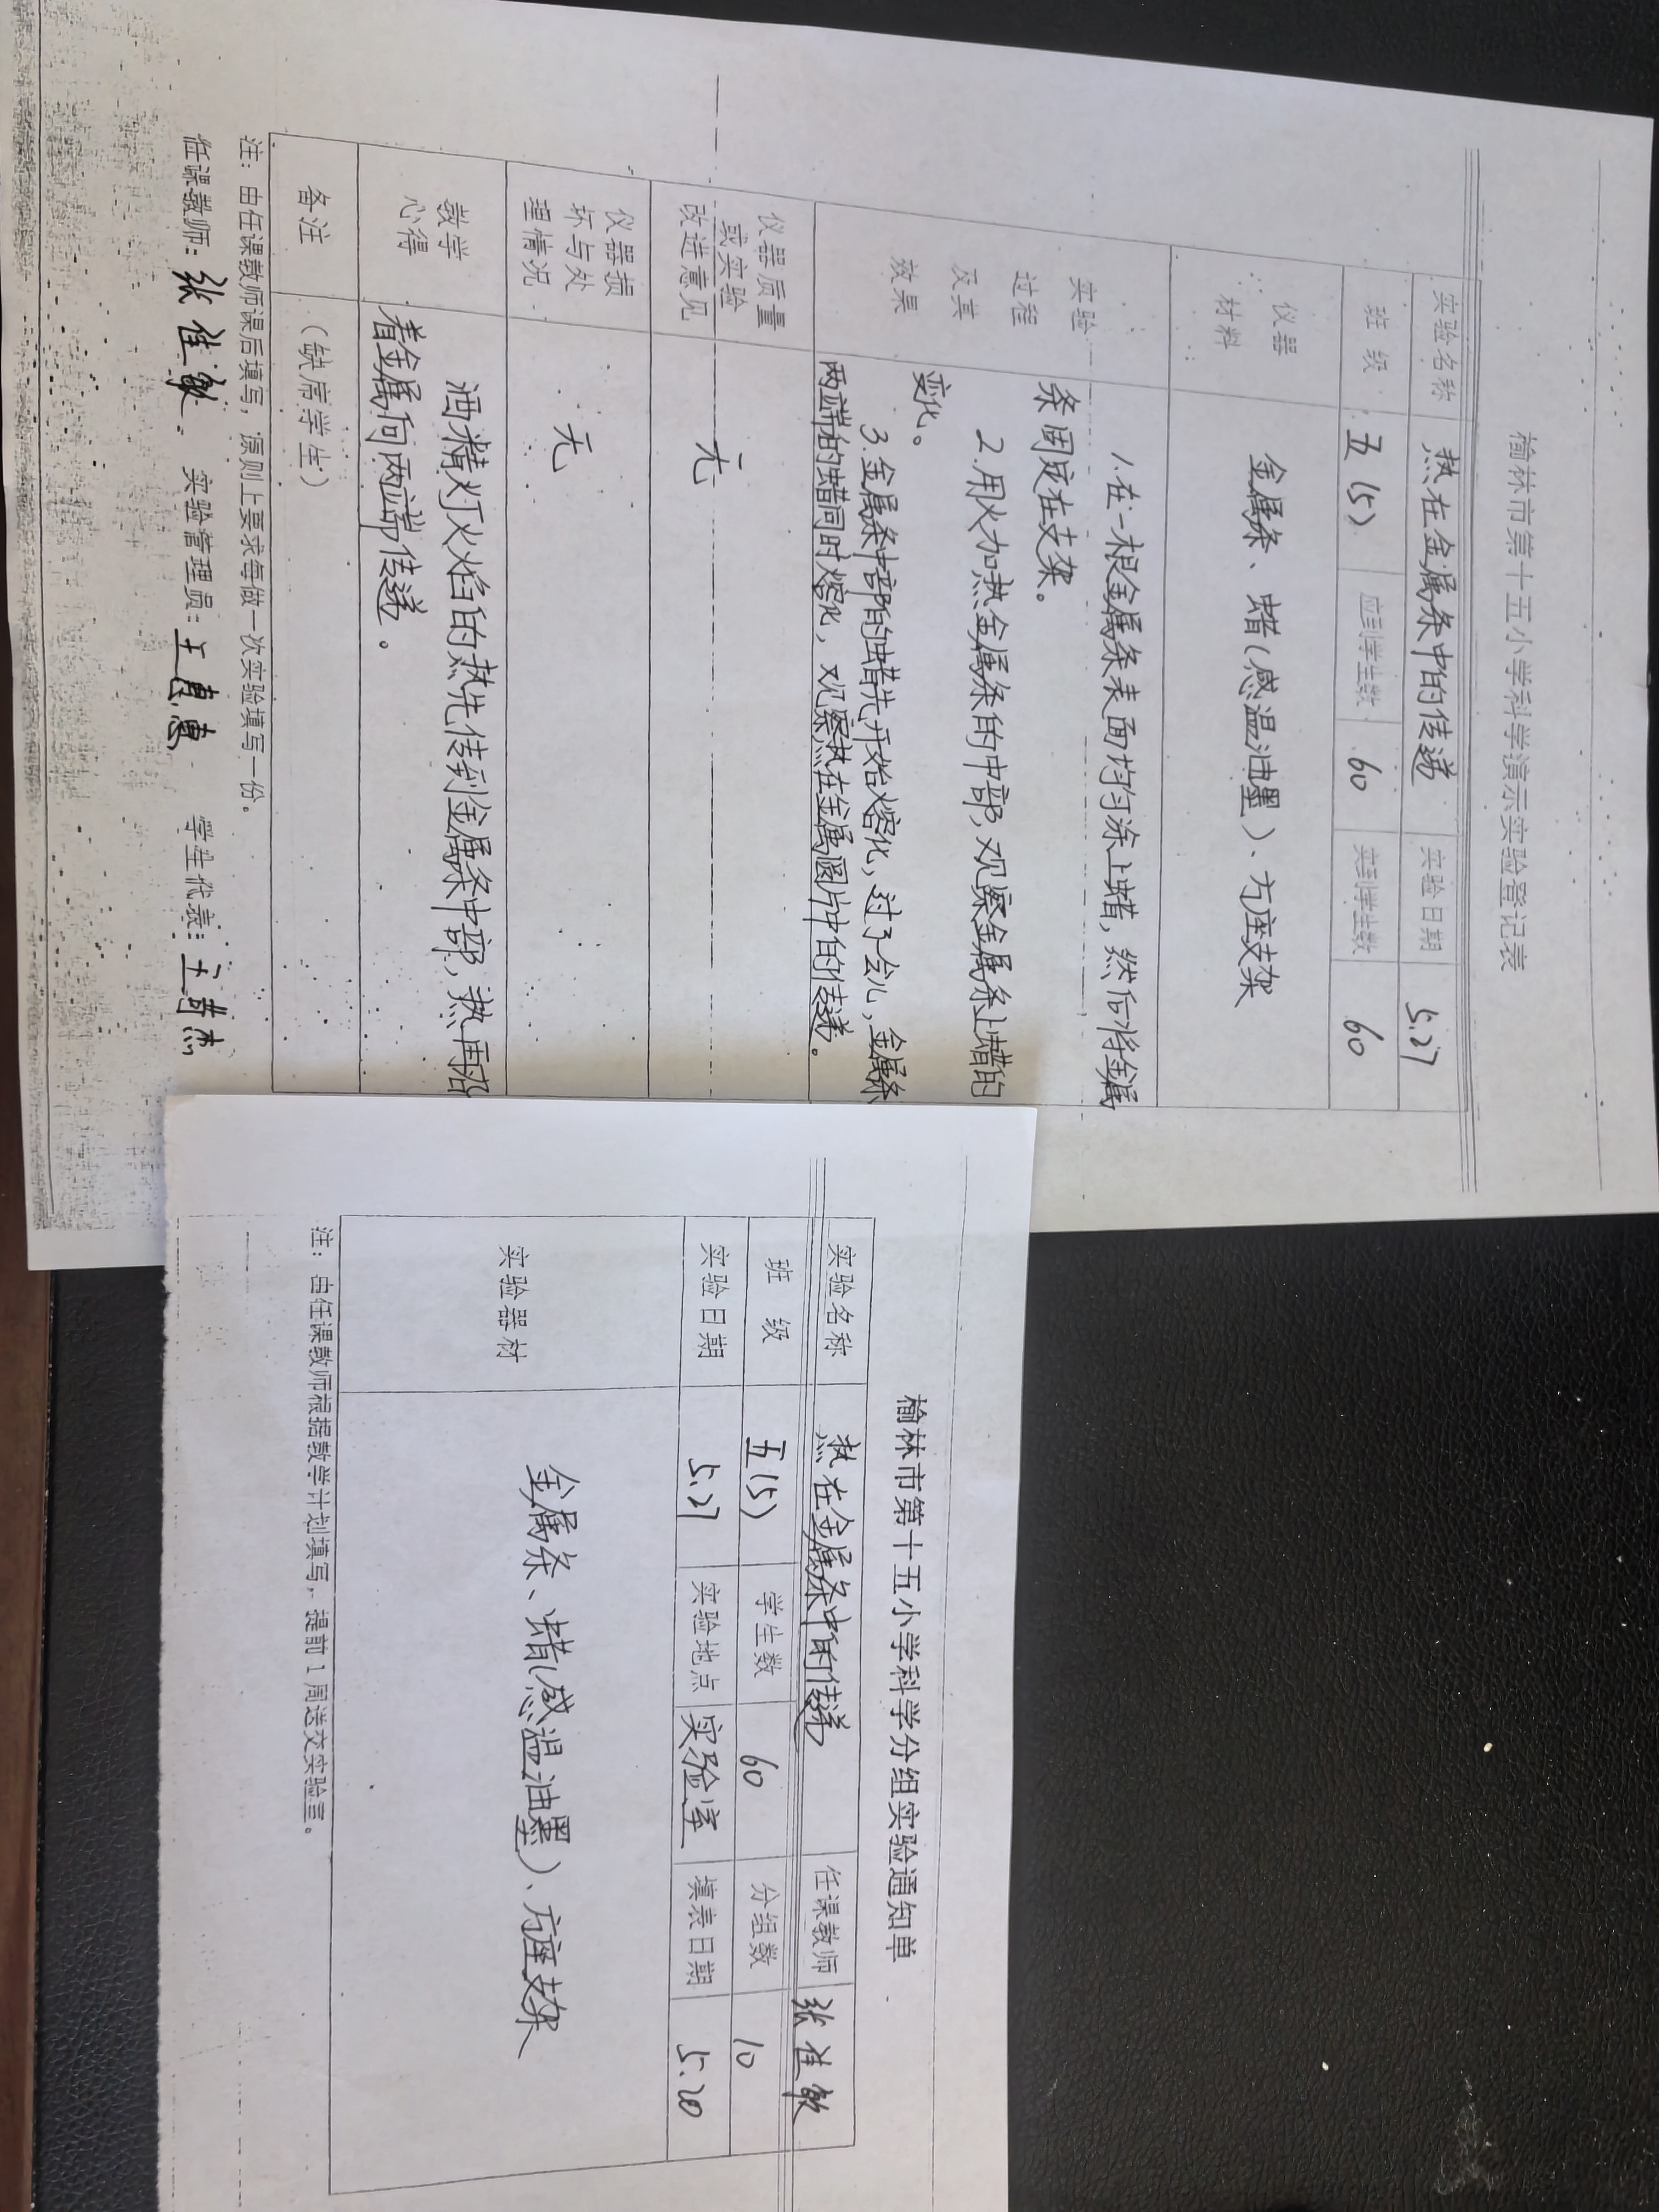 榆林市第十五小学科学演示实验登记表
实验名称 热在金属条中的传递 实验日期 5.27
班 级 五(5) 应到学生数 60 实到学生数 60
仪器
材料
金属条、蜡(感温油墨)、方座支架
实验
过程
及其
效果
1.在一根金属条表面均匀涂上蜡,然后将金属
条固定在支架。
2.用火加热金属条的中部,观察金属条上蜡的
变化。
3.金属条中部的蜡先开始熔化,过了会儿,金属条
两端的蜡同时熔化,观察热在金属圆片中的传递。
仪器质量
或实验
改进意见
无
仪器损
坏与处
理情况
无
教学
心得
酒精灯火焰的热先传到金属条中部,热再沿
着金属向两端传递。
备注 (缺席学生)
注:由任课教师课后填写,原则上要求每做一次实验填写一份。
任课教师: 张佳敏 实验管理员: 学生代表:
榆林市第十五小学科学分组实验通知单
实验名称 热在金属条中的传递 任课教师 张佳敏
班 级 五(5) 学生数 60 分组数 10
实验日期 5.27 实验地点 实验室 填表日期 5.20
实验器材 金属条、蜡(感温油墨)、方座支架
注:由任课教师根据教学计划填写,提前1周送交实验室。